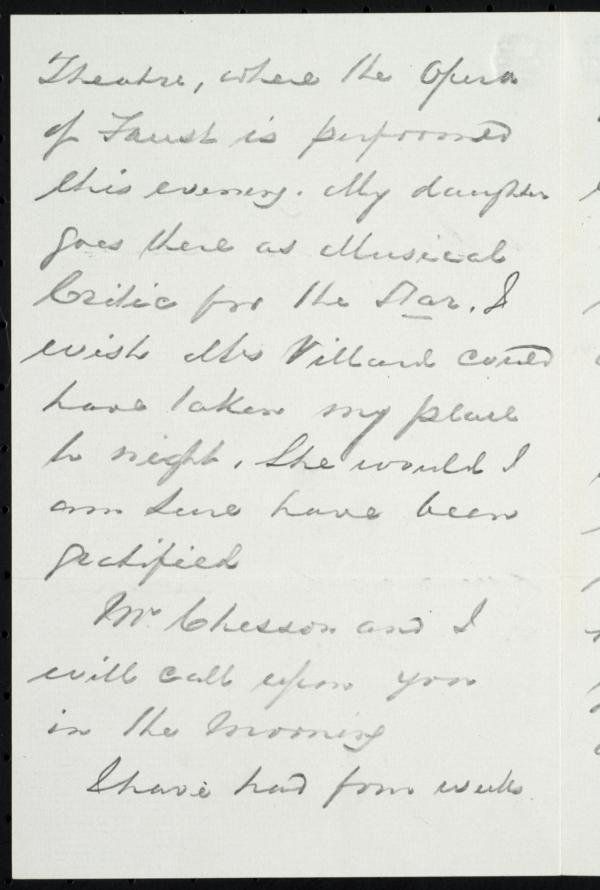 Theatre, where the Opera
of Faust is performed
this evening. My daughter
goes there as Musical
Critic for the Star. I
wish Mrs Villard could
have taken my place
to night. She would I
am sure have been
gratified
Mr. Chesson and I
will call upon you
in the morning
I have had four weeks